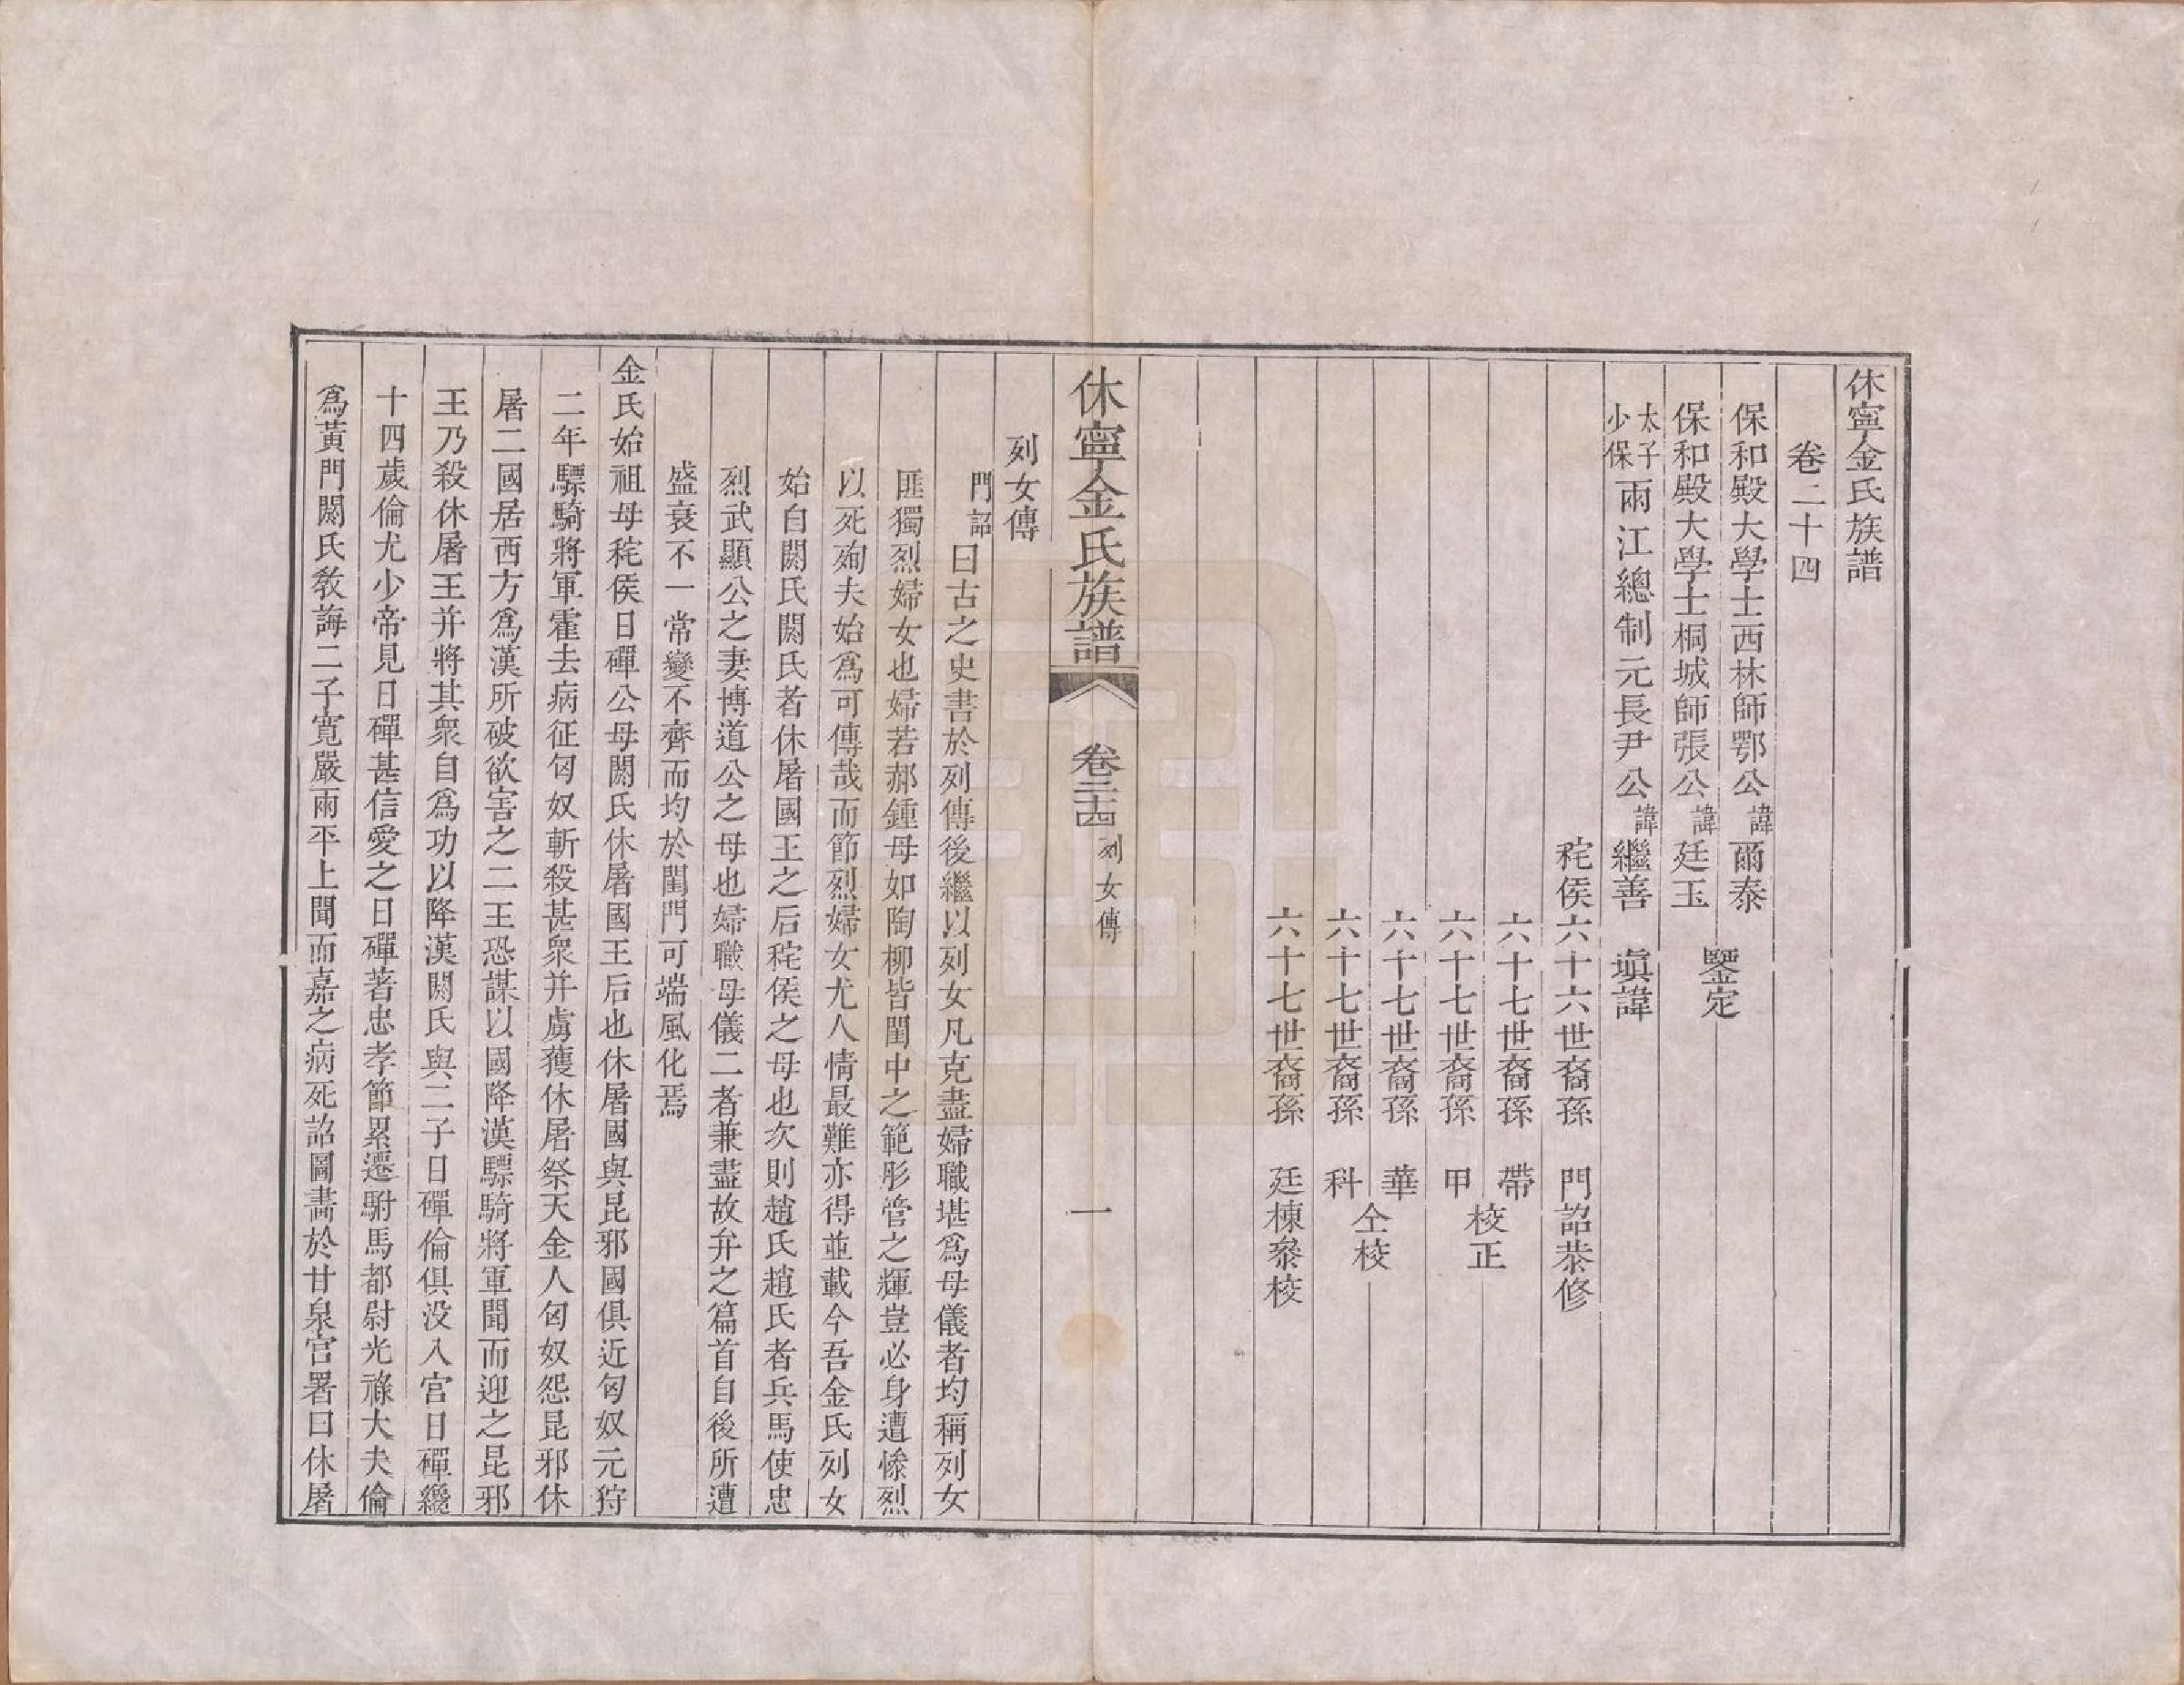 休寧金氏族譜
卷二十四
保和殿大學士西林師鄂公諱爾泰
保和殿大學士桐城師張公諱廷玉
鑒定
太子少保兩江總制元長尹公諱繼善　塡諱
秺侯六十六世裔孫　門詔恭修
六十七世裔孫　帶
六十七世裔孫　甲
校正
六十七世裔孫　華
六十七世裔孫　科
仝校
六十七世裔孫　廷棟叅校
休寧金氏族譜　卷二十四　列女傳　一
列女傳
門詔曰古之史書於列傳後繼以列女凡克盡婦職堪爲母儀者均稱列女
匪獨烈婦女也婦若郝鍾母如陶柳皆閨中之範彤管之輝豈必身遭慘烈
以死殉夫始爲可傳哉而節烈婦女尤人情最難亦得並載今吾金氏列女
始自閼氏閼氏者休屠國王之后秺侯之母也次則趙氏趙氏者兵馬使忠
烈武顯公之妻博道公之母也婦職母儀二者兼盡故弁之篇首自後所遭
盛衰不一常變不齊而均於閨門可端風化焉
金氏始祖母秺侯日磾公母閼氏休屠國王后也休屠國與昆邪國俱近匈奴元狩
二年驃騎將軍霍去病征匈奴斬殺甚衆并虜獲休屠祭天金人匈奴怨昆邪休
屠二國居西方爲漢所破欲害之二王恐謀以國降漢驃騎將軍聞而迎之昆邪
王乃殺休屠王并將其衆自爲功以降漢閼氏與二子日磾倫俱没入宮日磾纔
十四歲倫尤少帝見日磾甚信愛之日磾著忠孝節累遷駙馬都尉光祿大夫倫
爲黃門閼氏敎誨二子寬嚴兩平上聞而嘉之病死詔圖畫於甘泉宮署曰休屠